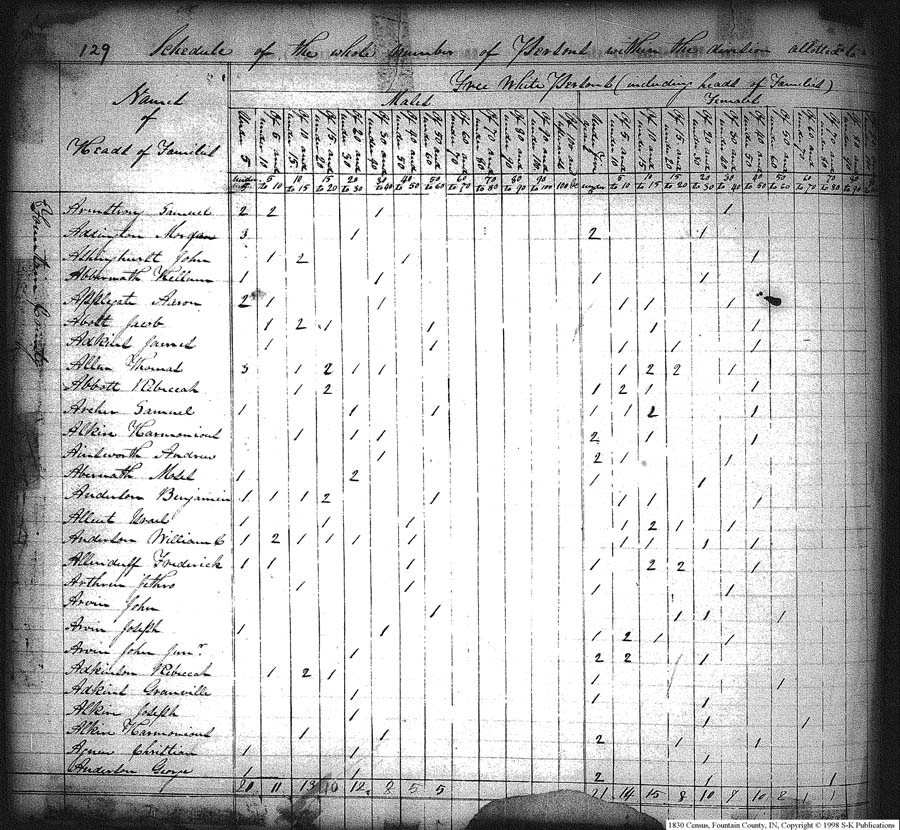 129 Schedule of the whole number of Persons within the division allotted to
Free White Persons (including heads of Families)
Names of Heads of Families
Males
Females
under 5 5 to 10 10 to 15 15 to 20 20 to 30 30 to 40 40 to 50 50 to 60 60 to 70 70 to 80 80 to 90 90 to 100 100 &c under 5 5 to 10 10 to 15 15 to 20 20 to 30 30 to 40 40 to 50 50 to 60 60 to 70 70 to 80 80 to 90
Fountain County
Armstrong Samuel 2 2 1 1
Addington Morgan 3 1 2 1
Ashinghurst John 1 2 1 1
Abbernath William 1 1 1 1
Applegate Aaron 2 1 1 1 1 1
Abott Jacob 1 2 1 1 1 1
Adkins James 1 1 1 1 1
Allen Thomas 3 1 2 1 1 1 2 2 1
Abbott Rebeccah 1 2 1 2 1 1
Archer Samuel 1 1 1 1 1 2 1
Alkin Harmonious 1 1 1 2 1 1
Ainsworth Andrew 1 2 1 1
Abernath Moses 1 2 1 1
Anderson Benjamin 1 1 1 2 1 1 1 1
Israel 1 1 1 1 2 1 1
Anderson William C 1 2 1 1 1 1 1 1 1 1
Allenduff Frederick 1 1 1 1 2 2 1
Arthren Jethro 1 1 1 1
Arvin John 1 1 1 1
Arvin Joseph 1 1 1 2 1 1
Arvin John Junr. 1 2 2 1
Adkinson Rebeccah 1 2 1 1 1
Adkins Granville 1 1 1
Alkin Joseph 1 1 1
Alkin Harmonious 1 1 2 1 1
Christian 1 1 1
Anderson George 1 1 2 1 1
20 11 13 10 12 8 5 5 21 14 15 8 10 9 10 2 1 1
1830 Census, Fountain County, IN, Copyright © 1998 S-K Publications